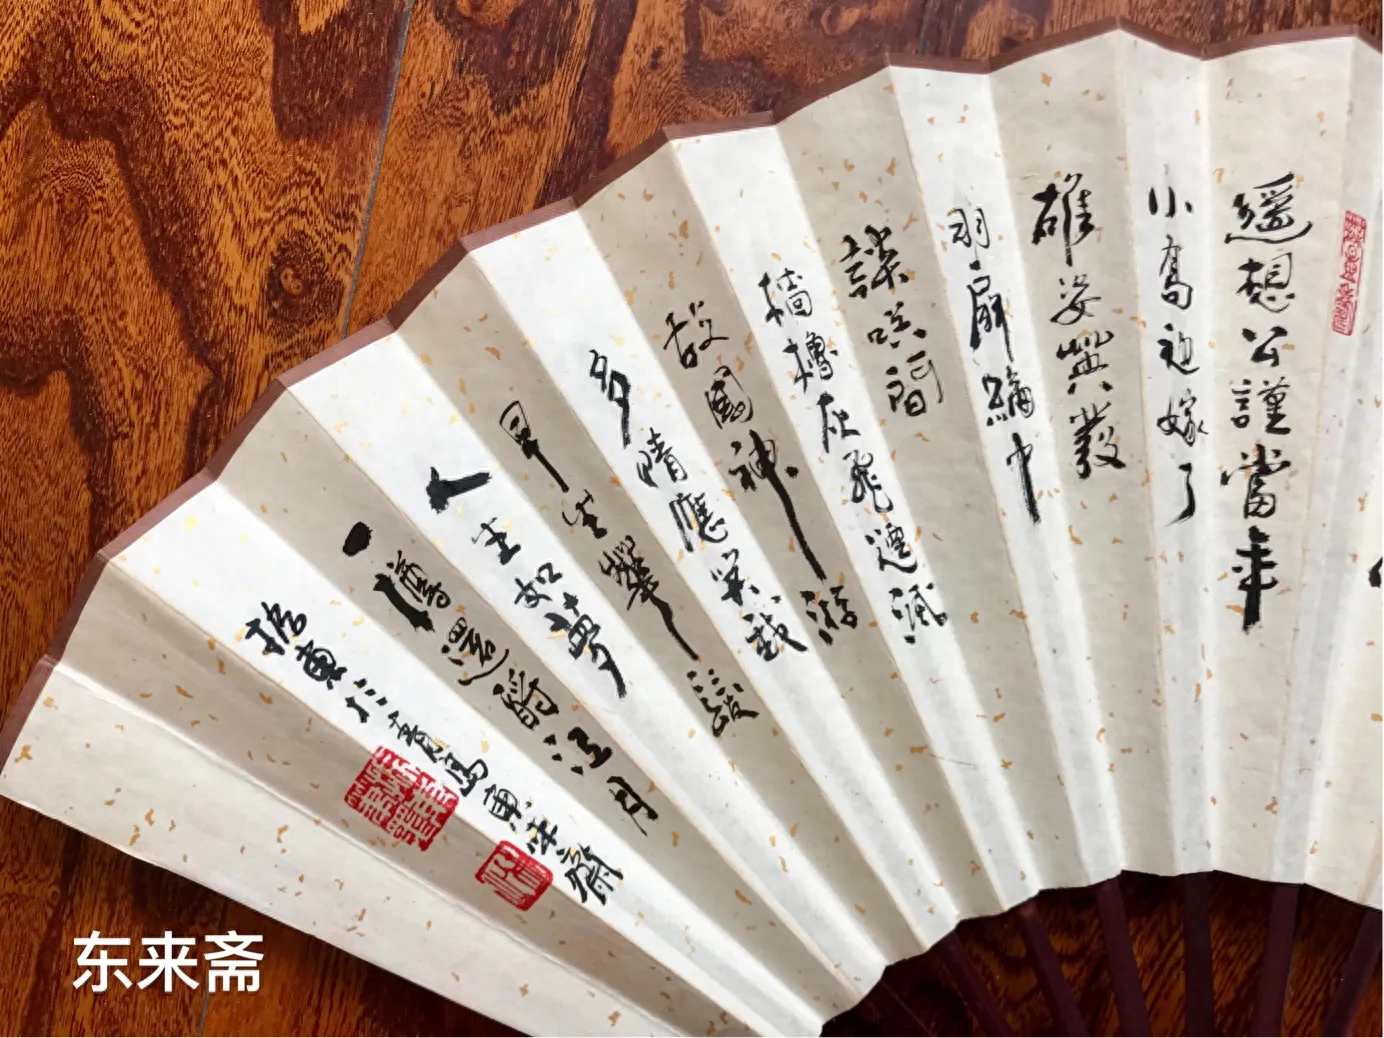 遥想公謹當年
小喬初嫁了
雄姿英發
羽扇綸中
談笑間
檣櫓灰飛煙滅
故國神游
多情應笑我
早生華髮
人生如夢
一尊還酹江月
東來齋
东来斋